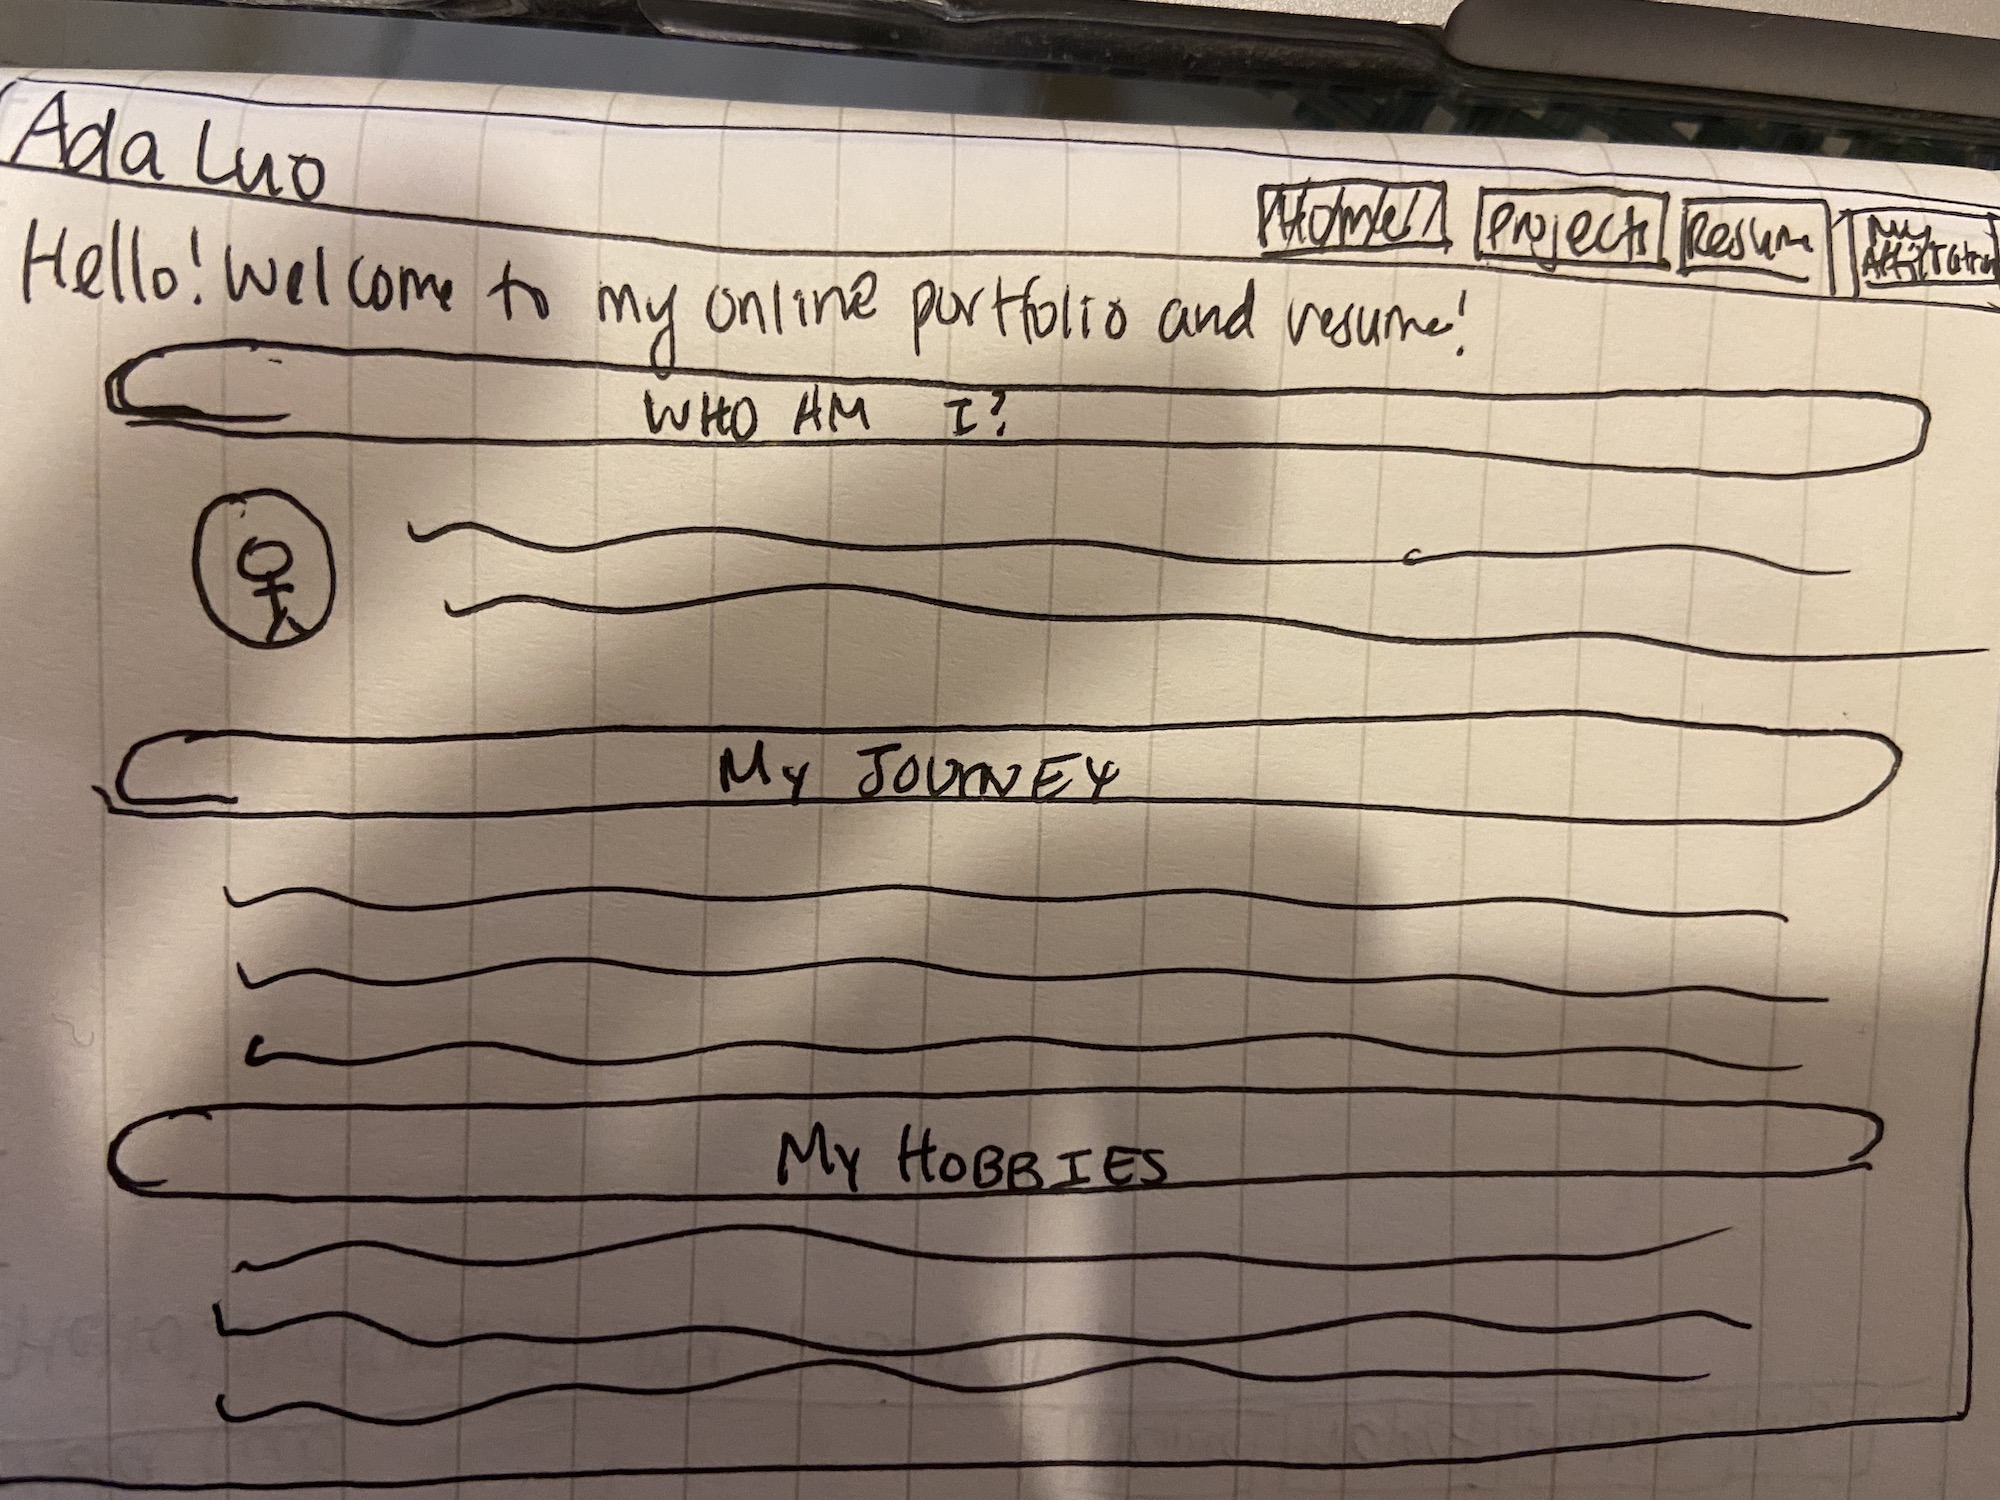 Ada Luo
Home Projects Resume My
Hello! Welcome to my online portfolio and resume!
WHO AM I?
My JOURNEY
My HOBBIES